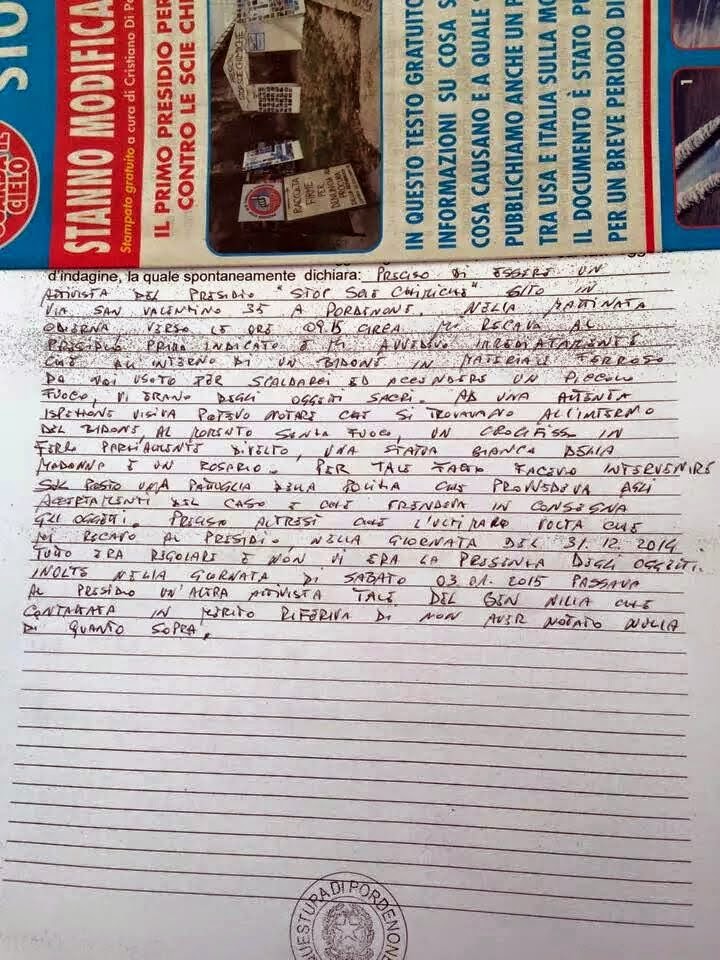 STO
GUARDA IL
CIELO
STANNO MODIFICA
Stampato gratuito a cura di Cristiano Di Po
IL PRIMO PRESIDIO PER
CONTRO LE SCIE CHI
RACCOLTA
FIRME
PER
DENUNCIA
PROCURA
IN QUESTO TESTO GRATUITO
INFORMAZIONI SU COSA S
COSA CAUSANO E A QUALE
PUBBLICHIAMO ANCHE UN P
TRA USA E ITALIA SULLA MO
IL DOCUMENTO È STATO PU
PER UN BREVE PERIODO DI
1
d'indagine, la quale spontaneamente dichiara: PRECISO DI ESSERE UN
ATTIVISTA DEL PRESIDIO "STOP SCIE CHIMICHE" SITO IN
VIA SAN VALENTINO 35 A PORDENONE. NELLA MATTINATA
ODIERNA VERSO LE ORE 09.15 CIRCA MI RECAVO AL
PRESIDIO PRIMA INDICATO E MI AVVEDEVO IMMEDIATAMENTE
CHE ALL'INTERNO DI UN BIDONE IN MATERIALE FERROSO
DA NOI USATO PER SCALDARCI ED ACCENDERE UN PICCOLO
FUOCO, VI ERANO DEGLI OGGETTI SACRI. AD UNA ATTENTA
ISPEZIONE VISIVA POTEVO NOTARE CHE SI TROVAVANO ALL'INTERNO
DEL BIDONE, AL MOMENTO SENZA FUOCO, UN CROCIFISSO IN
FERRO PARZIALMENTE DIVELTO, UNA STATUA BIANCA DELLA
MADONNA E UN ROSARIO. PER TALE FATTO FACEVO INTERVENIRE
SUL POSTO UNA PATUGLIA DELLA POLIZIA CHE PROVVEDEVA AGLI
ACCERTAMENTI DEL CASO E CHE PRENDEVA IN CONSEGNA
GLI OGGETTI. PRECISO ALTRESI CHE L'ULTIMA VOLTA CHE
MI RECAVO AL PRESIDIO NELLA GIORNATA DEL 31.12.2014
TUTTO ERA REGOLARE E NON VI ERA LA PRESENZA DEGLI OGGETTI.
INOLTE NELLA GIORNATA DI SABATO 03.01.2015 PASSAVA
AL PRESIDIO UN'ALTRA ATTIVISTA TALE DEL BEN CHE
CONTATTATA IN MERITO RIFERIVA DI NON AVER NOTATO NULLA
DI QUANTO SOPRA.
QUESTURA DI PORDENONE